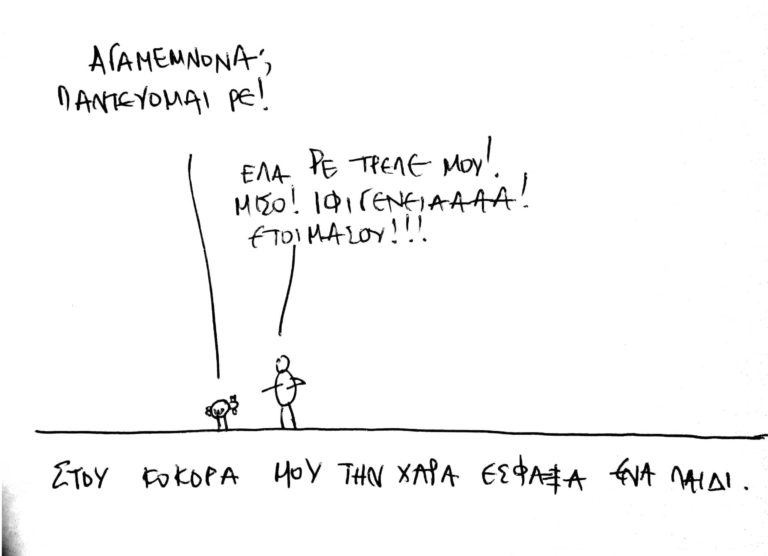 ΑΓΑΜΕΜΝΟΝΑ;
ΠΑΝΤΕΥΟΜΑΙ ΡΕ!
ΕΛΑ ΡΕ ΤΡΕΛΕ ΜΟΥ!
ΜΙΣΟ! ΙΦΙΓΕΝΕΙΑΑΑΑ!
ΕΤΟΙΜΑΣΟΥ!!!
ΣΤΟΥ ΚΟΚΟΡΑ ΜΟΥ ΤΗΝ ΧΑΡΑ ΕΣΦΑΞΑ ΕΝΑ ΠΑΙΔΙ.